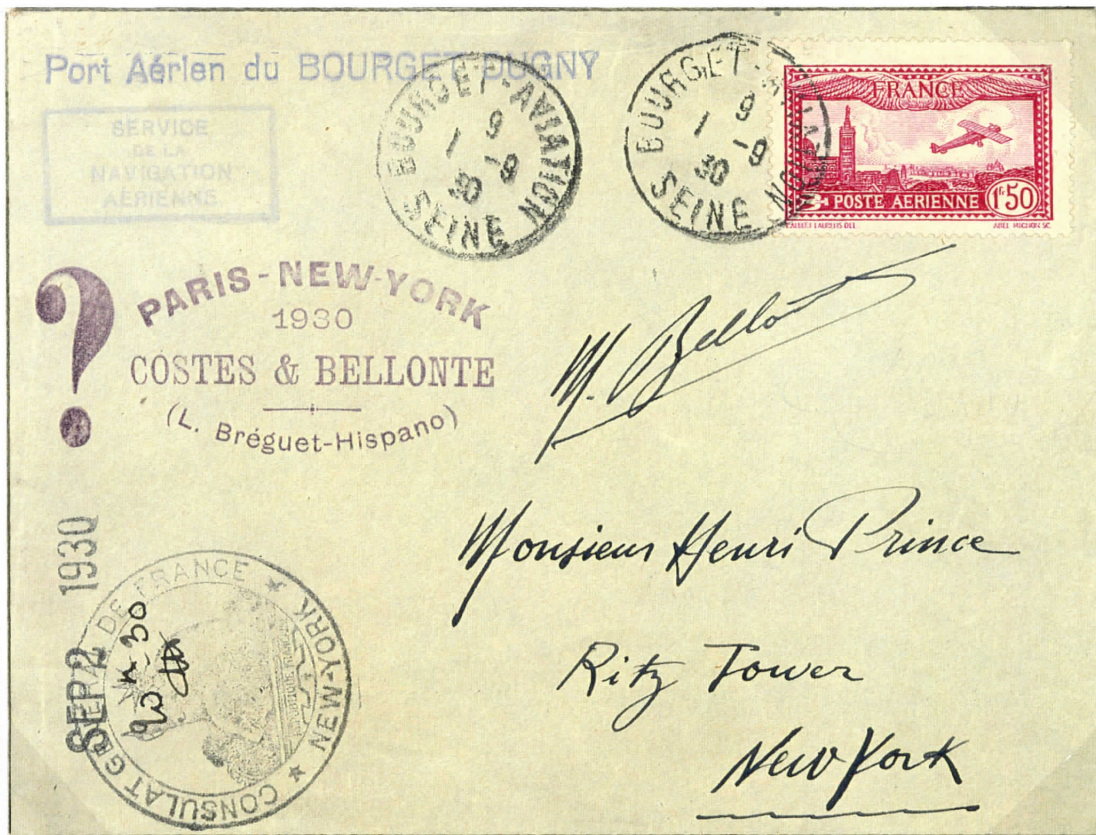 Port Aérien du BOURGET-DUGNY
SERVICE
DE LA
NAVIGATION
AÉRIENNE
BOURGET-AVIATION
9
1 -9
30
SEINE
BOURGET-AVIATION
9
1 -9
30
SEINE
FRANCE
POSTE AÉRIENNE 1F50
?
PARIS-NEW-YORK
1930
COSTES & BELLONTE
(L. Bréguet-Hispano)
M. Bellonte
Monsieur Henri Prince
Ritz Tower
New York
SEP 2 1930
CONSULAT GÉNÉRAL DE FRANCE
★ NEW-YORK ★